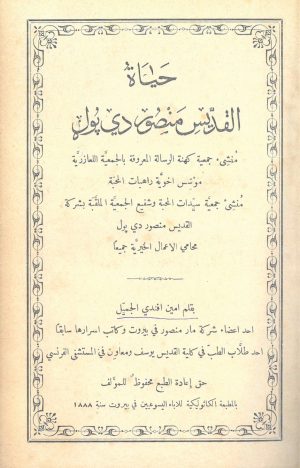 حياة
القديس منصور دي پول
منشىء جمعية كهنة الرسالة المعروفة بالجمعية اللعازرية
مؤسس اخوية راهبات المحبة
منشئ جمعية سيدات المحبة وشفيع الجمعية الملقبة بشركة
القديس منصور دي پول
محامي الاعمال الخيرية جميعا
بقلم امين افندي الجميل
احد اعضاء شركة مار منصور في بيروت وكاتب اسرارها سابقا
احد طلاب الطب في كلية القديس يوسف ومعاون في المستشفى الفرنسي
حق إعادة الطبع محفوظ للمؤلف
بالمطبعة الكاثوليكية للاباء اليسوعيين في بيروت سنة ١٨٨٨